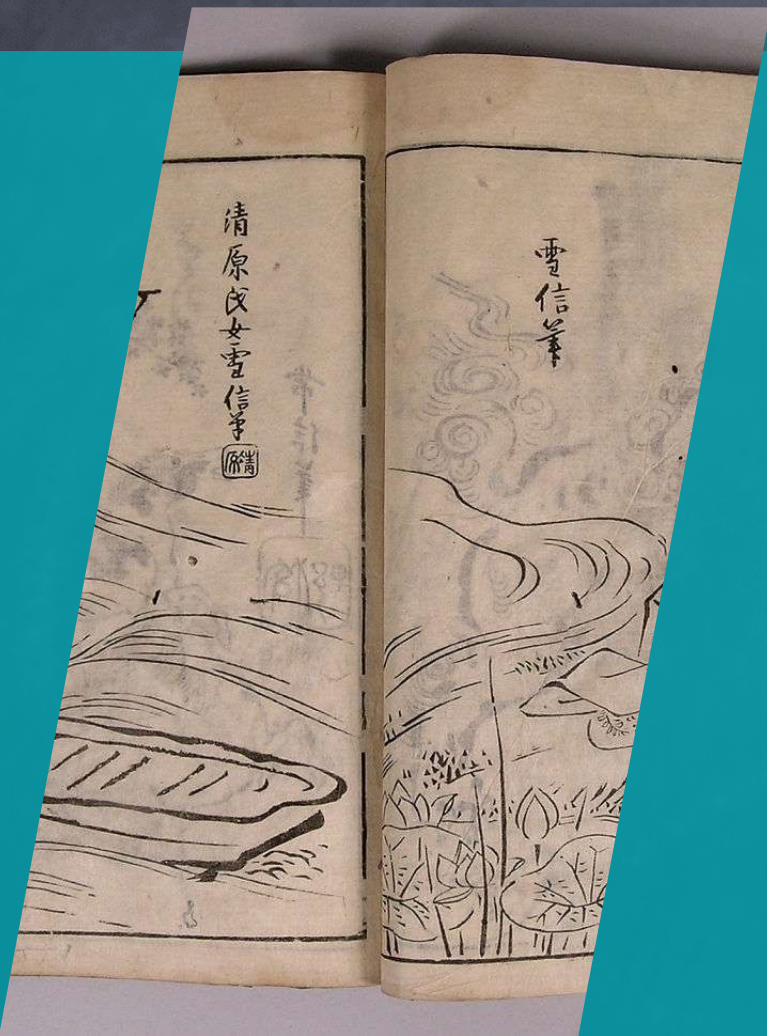 雪信筆
清原氏女雪信筆
清原